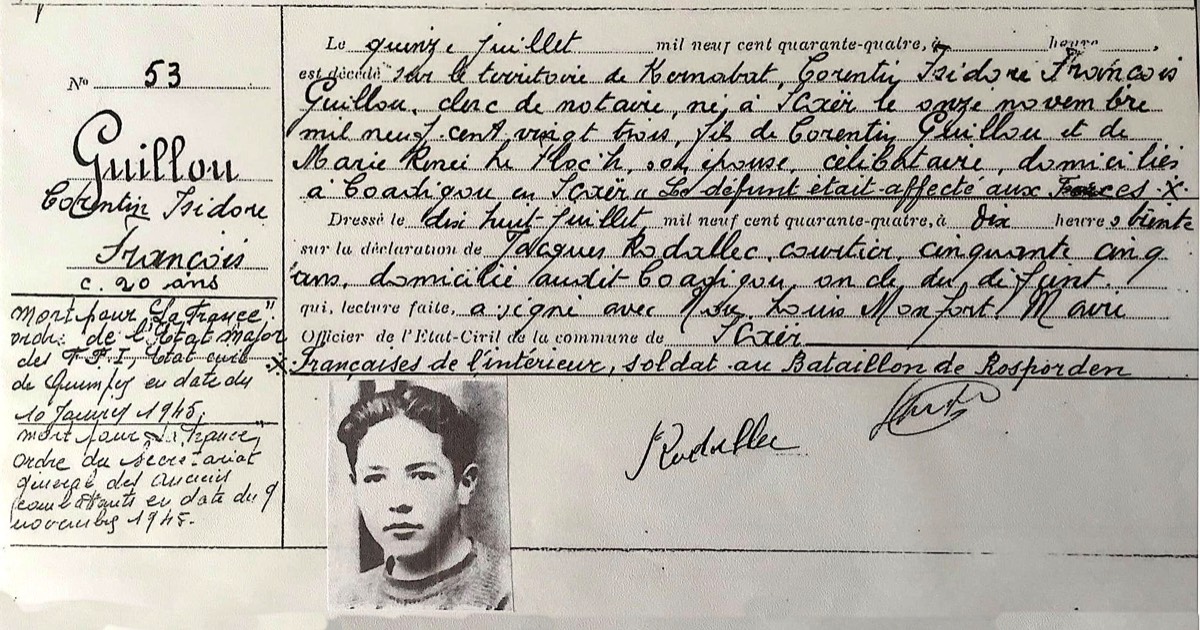 N° 53
Guillou
Corentin Isidore
François
c. 20 ans
Mort pour "La France"
ordre de l'Etat major
des F.F.I, Etat civil
de Quimper en date du
10 Janvier 1945,
mort pour la France,
ordre du Secrétariat
général des anciens
combattants en date du 9
novembre 1945.
Le quinze juillet mil neuf cent quarante-quatre, à heure,
est décédé sur le territoire de Kernabat, Corentin Isidore François
Guillou, clerc de notaire, né à Scaër le onze novembre
mil neuf cent vingt trois, fils de Corentin Guillou et de
Marie Renée Le Floc'h, son épouse, célibataire, domiciliés
à Coadigou en Scaër. Le défunt était affecté aux Forces X
Dressé le dix huit juillet, mil neuf cent quarante-quatre, à dix heures trente
sur la déclaration de Jacques Rodallec, courtier, cinquante cinq
ans, domicilié audit Coadigou, oncle du défunt
qui, lecture faite, a signé avec Nous, Louis Monfort, Maire
Officier de l'Etat-Civil de la commune de Scaër
X Françaises de l'intérieur, soldat au Bataillon de Rosporden
JRodallec